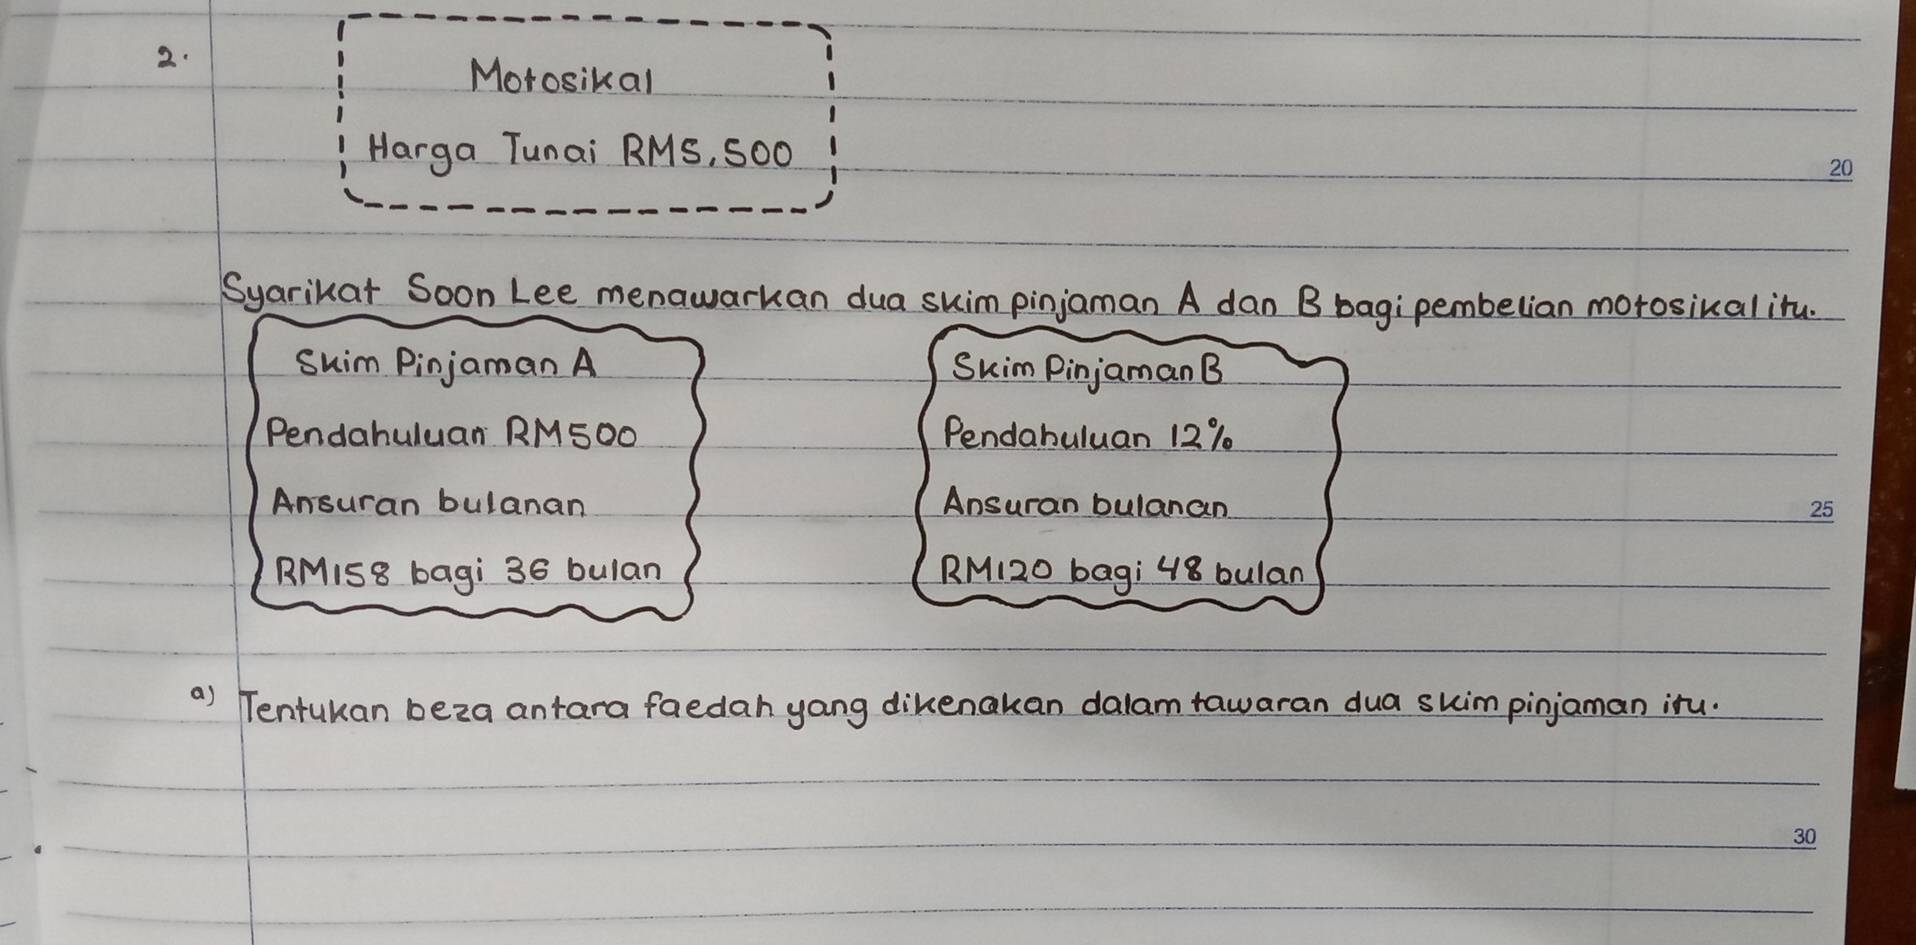 2.
Motosikal
Harga Tunai RM5,500
20
Syarikat Soon Lee menawarkan dua skim pinjaman A dan B bagi pembelian motosikal itu.
Skim Pinjaman A
Pendahuluan RM500
Ansuran bulanan
RM158 bagi 36 bulan
Skim Pinjaman B
Pendahuluan 12%
Ansuran bulanan
RM120 bagi 48 bulan
25
a) Tentukan beza antara faedah yang dikenakan dalam tawaran dua skim pinjaman itu.
30